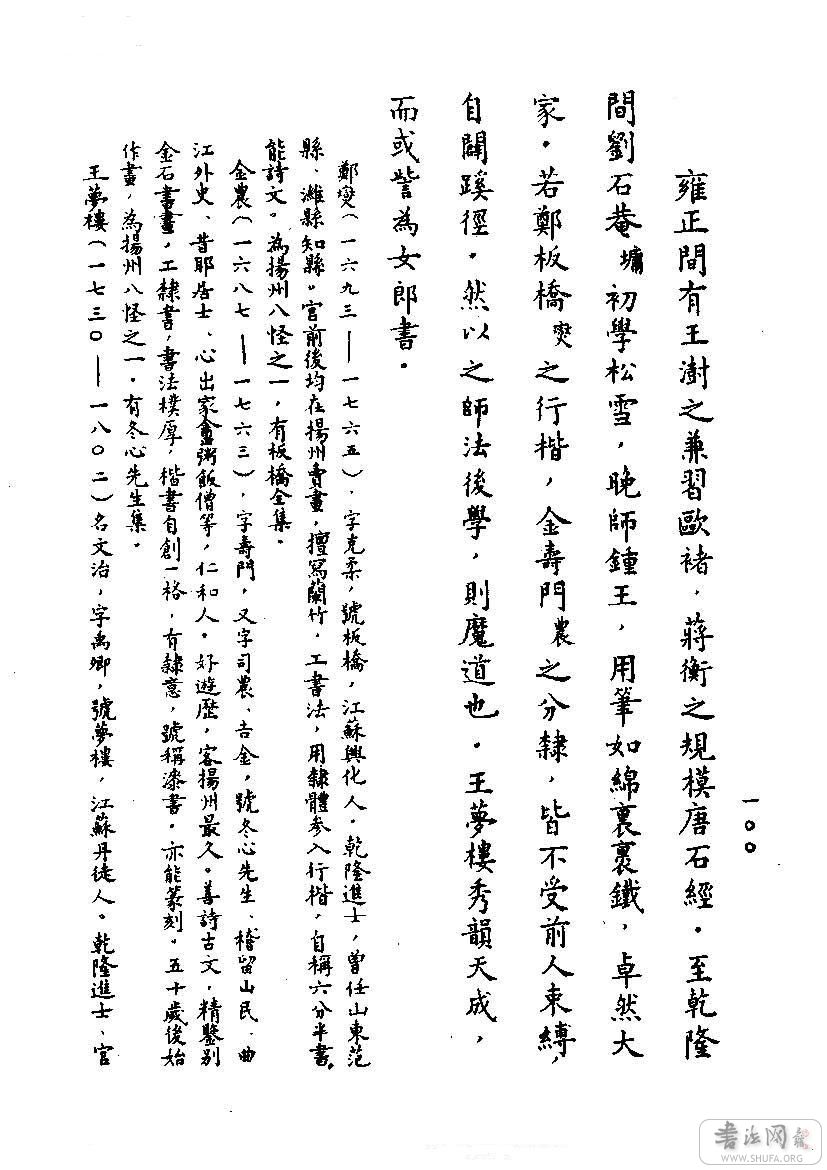 一〇〇
雍正間有王澍之兼習歐褚，蔣衡之規模唐石經。至乾隆
間劉石菴墉初學松雪，晚師鍾王，用筆如綿裏裹鐵，卓然大
家。若鄭板橋燮之行楷，金壽門農之分隸，皆不受前人束縛，
自闢蹊徑。然以之師法後學，則魔道也。王夢樓秀韻天成，
而或訾為女郎書。
鄭燮（一六九三——一七六五），字克柔，號板橋，江蘇興化人。乾隆進士，曾任山東范
縣、濰縣知縣。官前後均在揚州賣畫，擅寫蘭竹，工書法，用隸體參入行楷，自稱六分半書。
能詩文。為揚州八怪之一，有板橋全集。
金農（一六八七——一七六三），字壽門，又字司農、吉金，號冬心先生、稽留山民、曲
江外史、昔耶居士、心出家盦粥飯僧等，仁和人。好遊歷，客揚州最久。善詩古文，精鑒別
金石書畫，工隸書，書法樸厚，楷書自創一格，有隸意，號稱漆書。亦能篆刻。五十歲後始
作畫，為揚州八怪之一。有冬心先生集。
王夢樓（一七三〇——一八〇二）名文治，字禹卿，號夢樓，江蘇丹徒人。乾隆進士、官
书法网
WWW.SHUFA.ORG